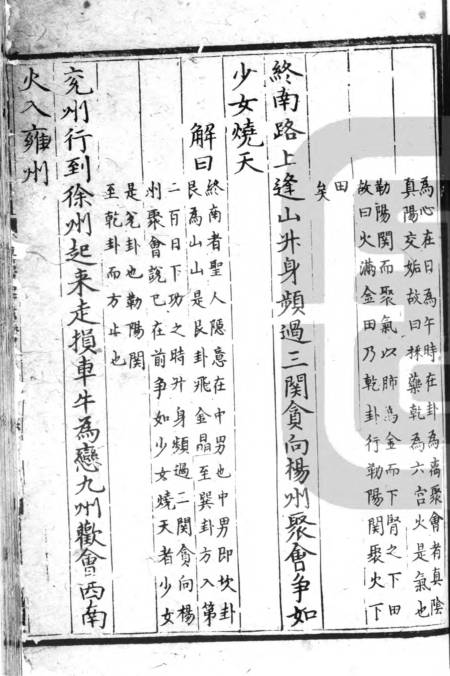 為心在日為午時在卦為离聚會者真陰
真陽交姤故曰採藥乾為六宫火是氣也
勒陽関而聚氣以肺為金而下腎之下田
故曰火滿金田乃乾卦行勒陽関聚火下
田
矣
終南路上逢山升身頻過三関貪向楊州聚會争如
少女燒天
解曰
終南者聖人隱意在中男也中男即坎卦
艮為山山是艮卦飛金晶至巽卦方入第
二百日下功之時升身頻過二関貪向楊
州聚會說已在前争如少女燒天者少女
是兊卦也勒陽関
至乾卦而方止也
兖州行到徐州起来走損車牛為戀九州歡會西南
火入雍州